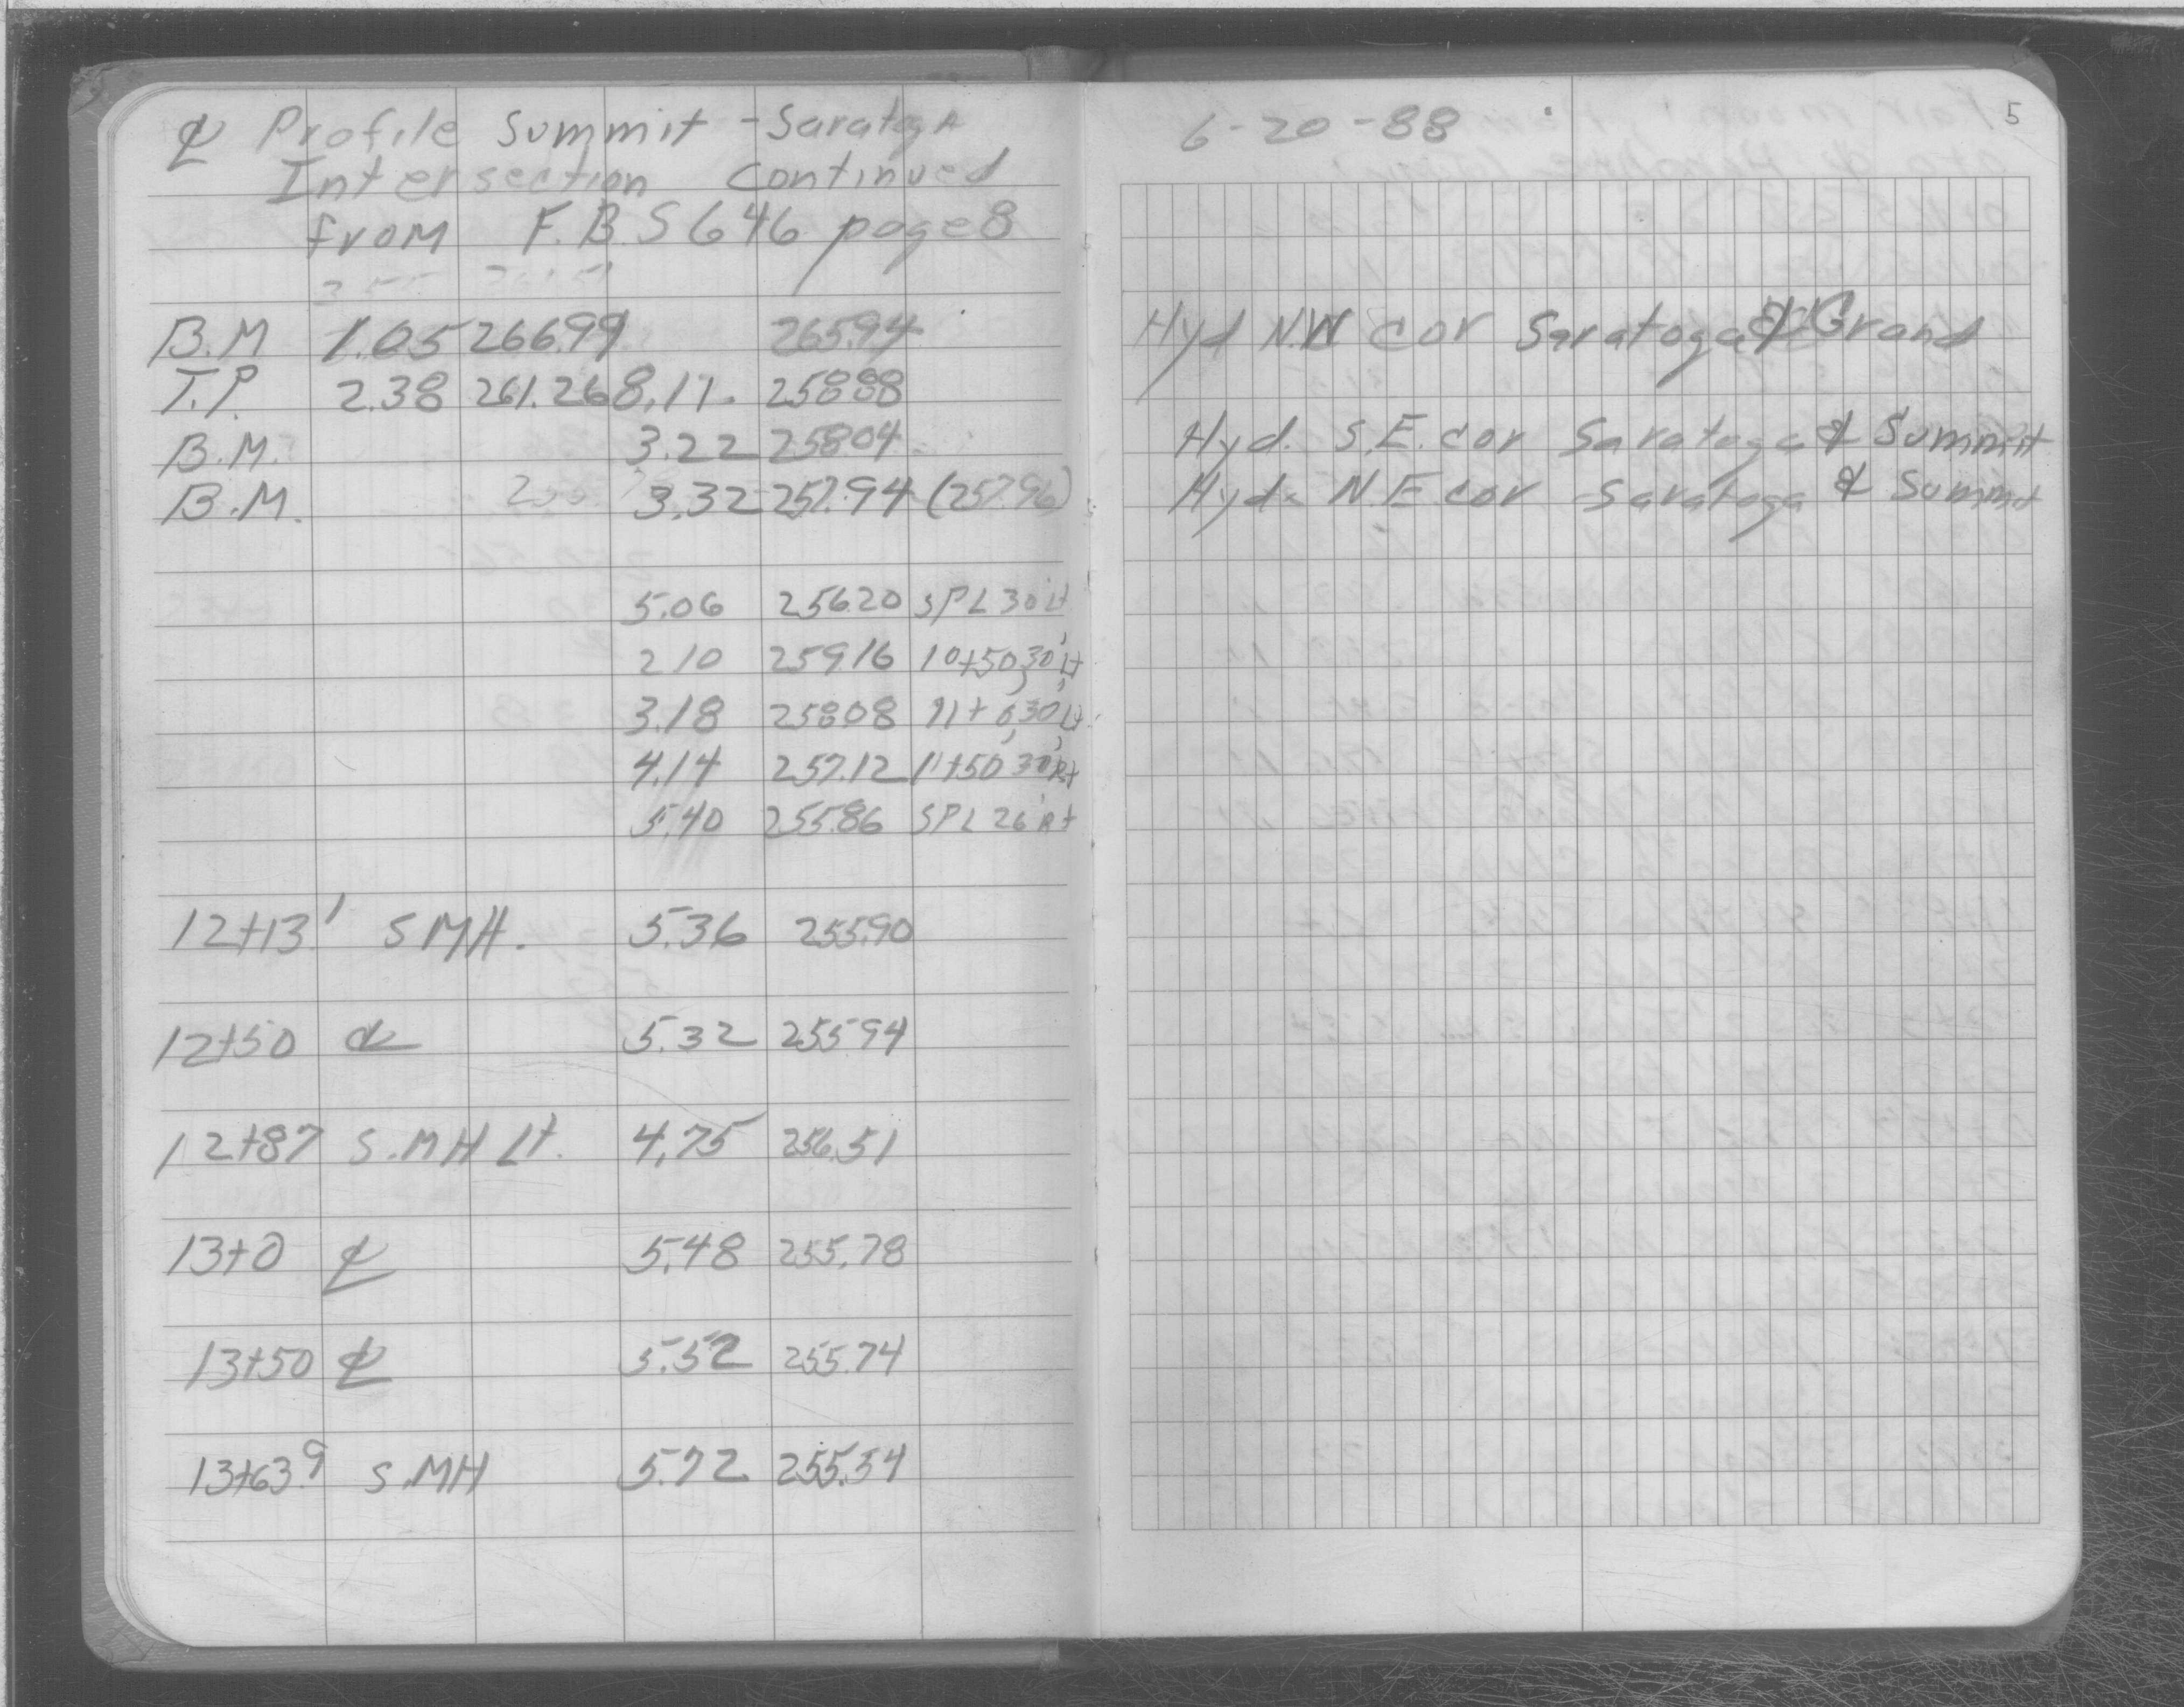 ℄ Profile Summit - Saratoga
Intersection continued
from F.B.S 646 page 8
B.M 1.05 266.99 265.94
T.P. 2.38 261.26 8.11 258.88
B.M. 3.22 258.04
B.M. 3.32 257.94 (257.96)
5.06 256.20 SPL 30' Lt
2.10 259.16 10+50, 30' Lt
3.18 258.08 11+0, 30' Lt
4.14 257.12 11+50 30' Rt
5.40 255.86 SPL 26' Rt
12+13.1 SMH. 5.36 255.90
12+50 ℄ 5.32 255.94
12+87 S.MH Lt. 4.75 256.51
13+0 ℄ 5.48 255.78
13+50 ℄ 5.52 255.74
13+63.9 S.MH 5.72 255.54
6-20-88
5
Hyd N.W cor Saratoga & Grand
Hyd. S.E. cor Saratoga & Summit
Hyd. N.E cor Saratoga & Summit